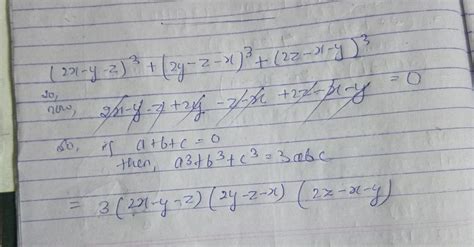 (2x-y-z)³ + (2y-z-x)³ + (2z-x-y)³
so,
now, 2x-y-z+2y-z-x+2z-x-y = 0
so, if a+b+c = 0
then, a3+b³+c³ = 3abc
= 3(2x-y-z)(2y-z-x)(2z-x-y)